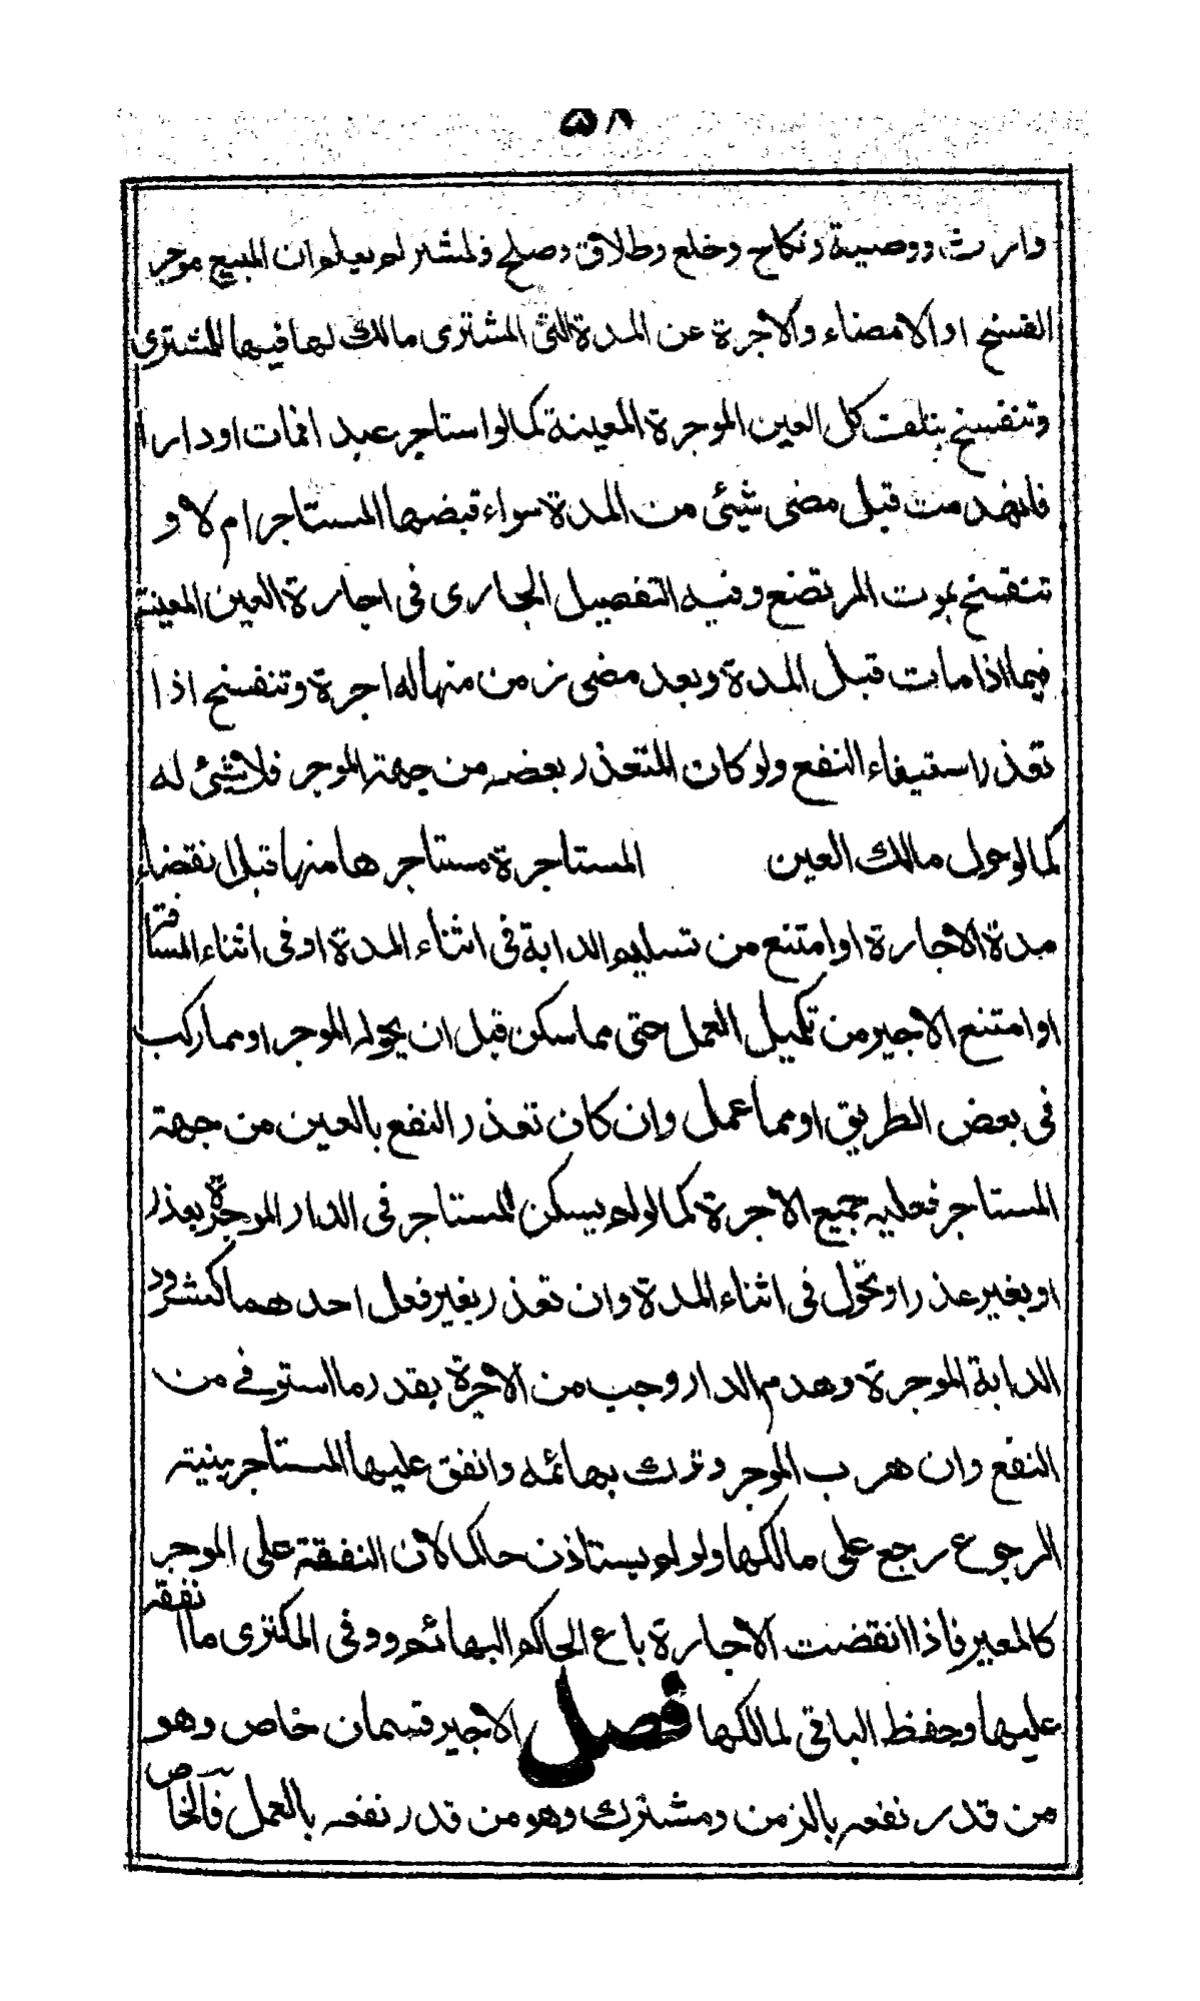 ٥٨
وارث ووصية ونكاح وخلع وطلاق وصلح ولمشتر لم يعلم ان المبيع موجر
الفسخ او الامضاء والاجرة عن المدة التى المشترى مالك لها فيها للمشترى
وتنفسخ بتلف كل العين الموجرة المعينة كما لو استاجر عبدا فمات او دارا
فانهدمت قبل مضى شيئى من المدة سواء قبضها المستاجر ام لا و
تنفسخ بموت المرتضع وفيه التفصيل الجارى فى اجارة العين المعينة
فيما اذا مات قبل المدة وبعد مضى زمن منها له اجرة وتنفسخ اذا
تعذر استيفاء النفع ولو كان المتعذر بعضه من جهة الموجر فلا شيئ له
كما لو حول مالك العين المستاجرة مستاجرها منها قبل انقضاء
مدة الاجارة او امتنع من تسليم الدابة فى اثناء المدة او فى اثناء المسافة
او امتنع الاجير من تكميل العمل حتى مما سكن قبل ان يحوله الموجر او مما ركب
فى بعض الطريق او مما عمل وان كان تعذر النفع بالعين من جهة
المستاجر فعليه جميع الاجرة كما لو لم يسكن المستاجر فى الدار الموجرة بعذر
او بغير عذر او تحوّل فى اثناء المدة وان تعذر بغير فعل احدهما كشرود
الدابة الموجرة وهدم الدار وجب من الاجرة بقدر ما استوفى من
النفع وان هرب الموجر وترك بهائمه وانفق عليها المستاجر بنية
الرجوع رجع على مالكها ولو لم يستاذن حاكما لان النفقة على الموجر
كالمعير فاذا انقضت الاجارة باع الحاكم البهائم ووفى المكترى ما انفقه
عليها وحفظ الباقى لمالكها فصل الاجير قسمان خاص وهو
من قدر نفعه بالزمن ومشترك وهو من قدر نفعه بالعمل فالخاص